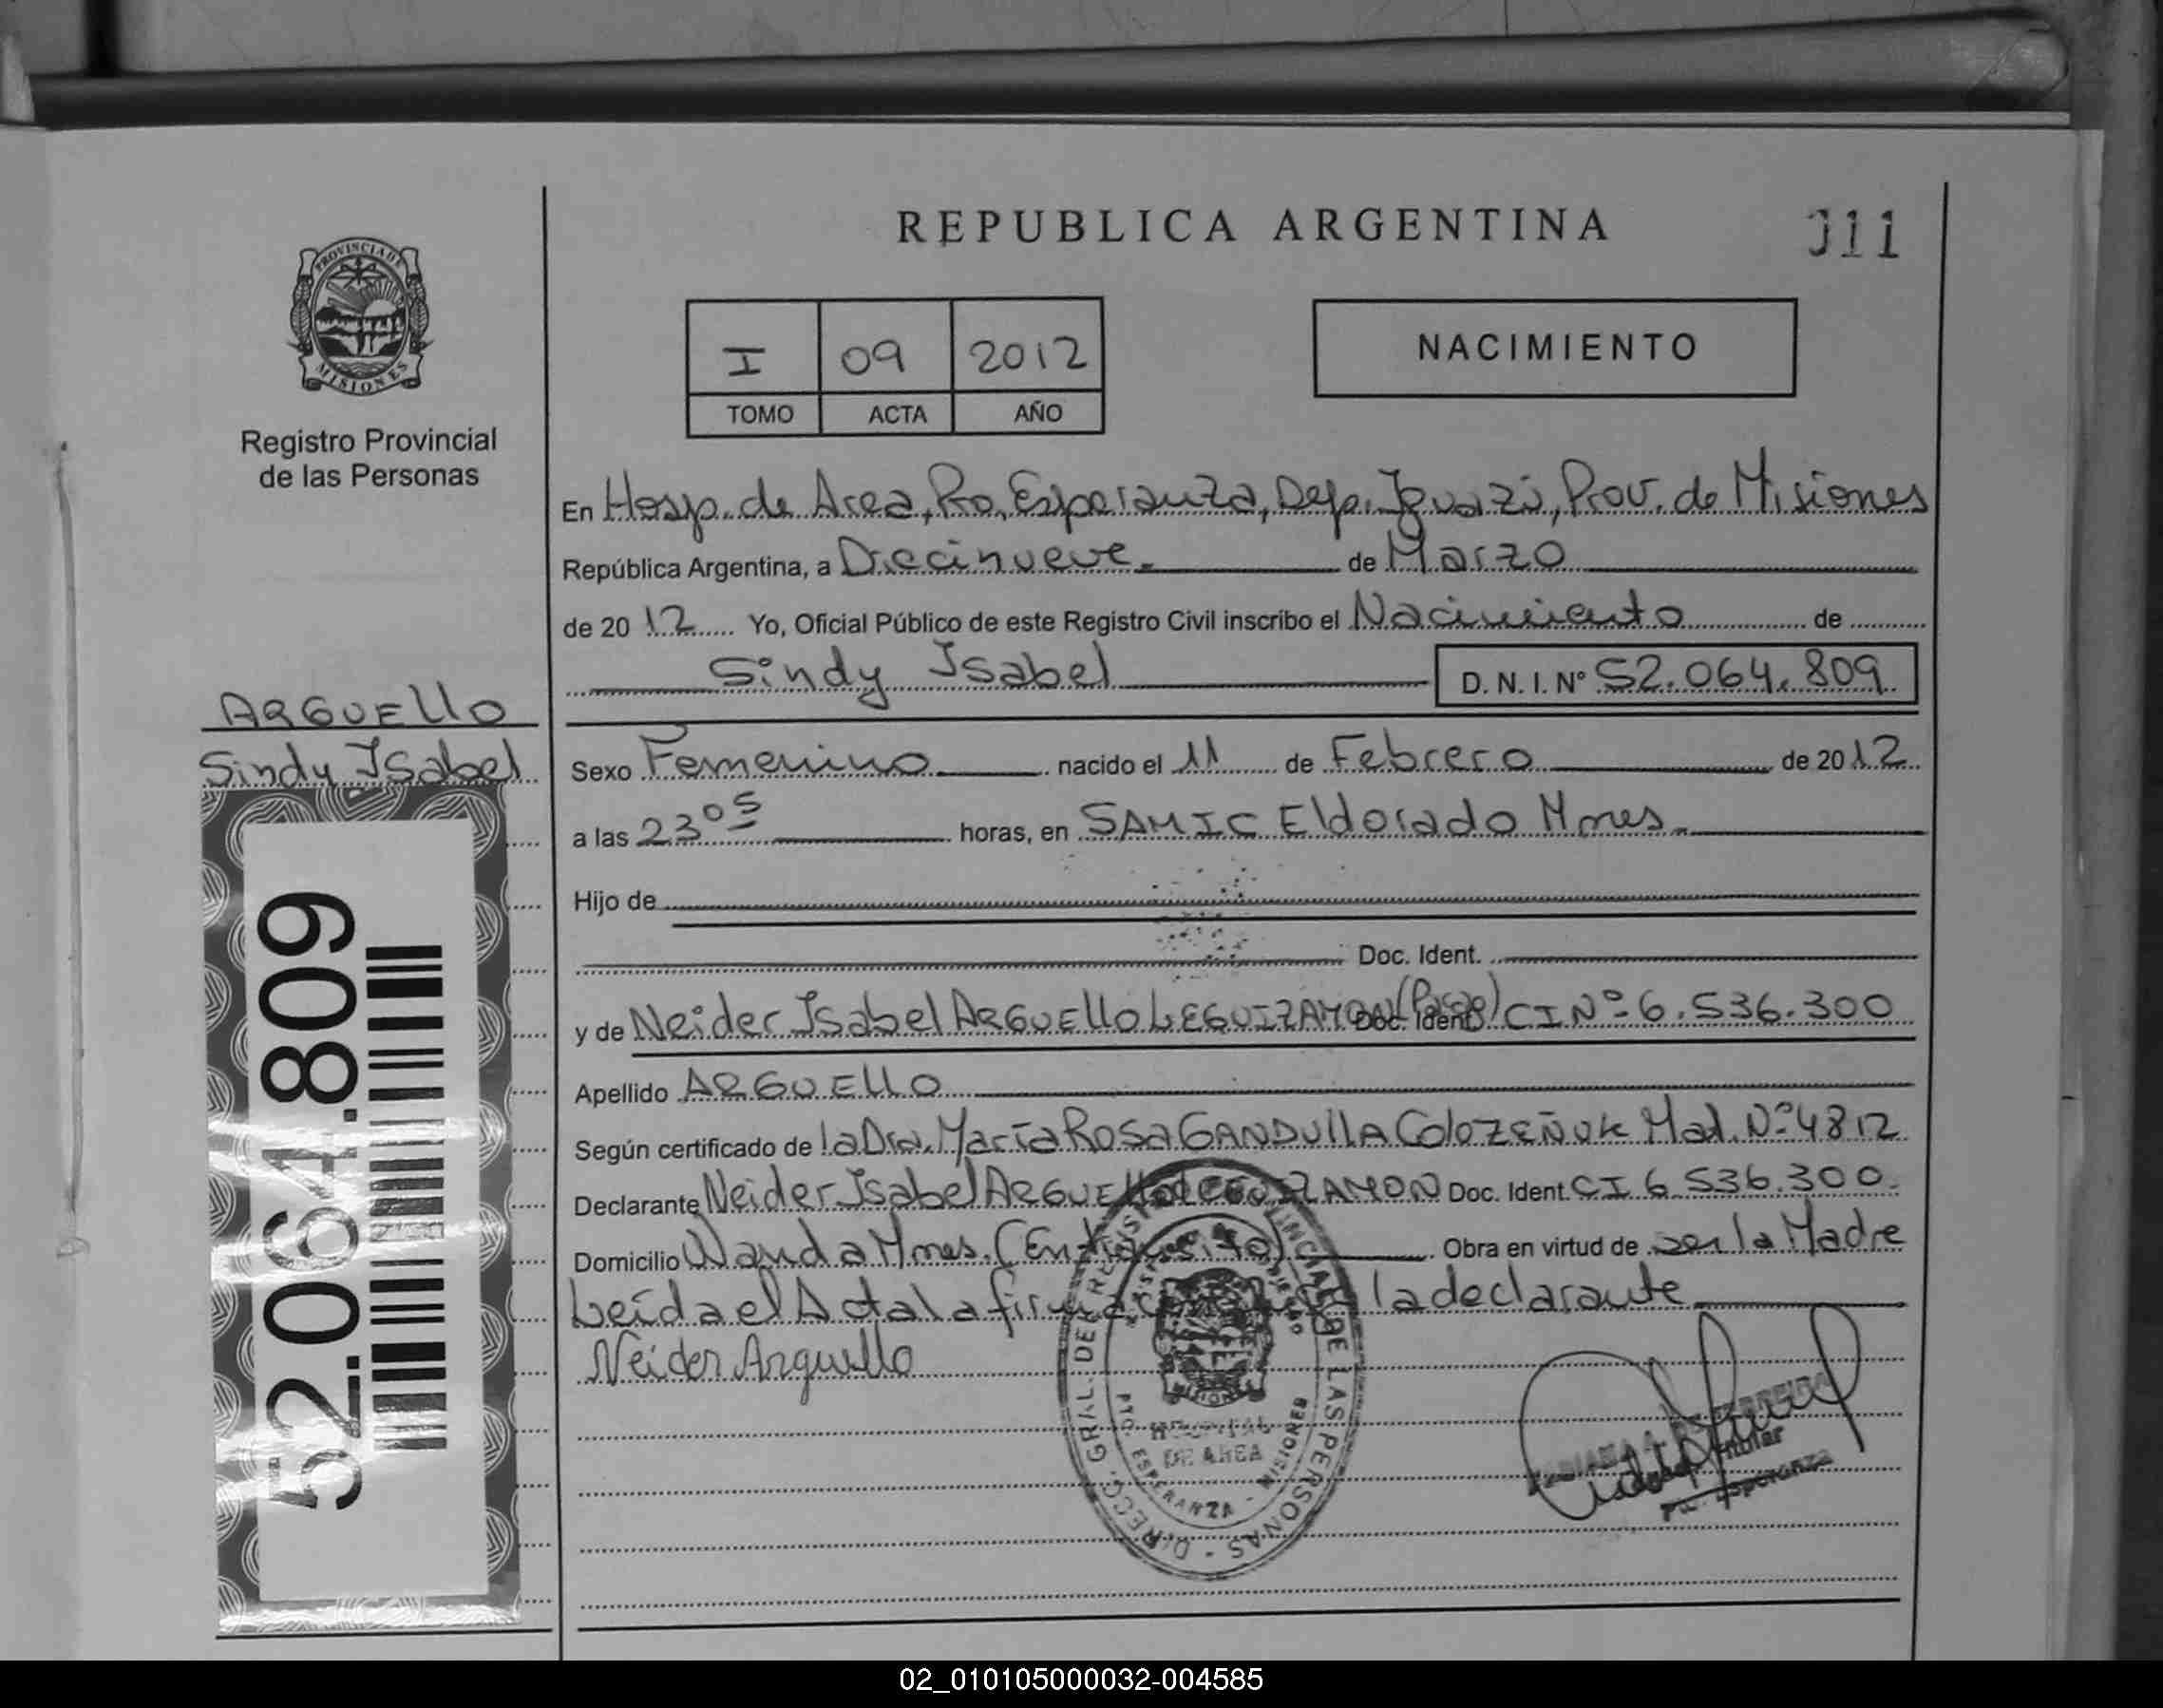 REPUBLICA ARGENTINA
011
PROVINCIA DE MISIONES
Registro Provincial
de las Personas
I 09 2012
TOMO ACTA AÑO
NACIMIENTO
En Hosp. de Area, Pto. Esperanza, Dep. Iguazú, Prov. de Misiones
República Argentina, a Diecinueve.- de Marzo
de 2012 Yo, Oficial Público de este Registro Civil inscribo el Nacimiento de
Sindy Isabel D. N. I. Nº 52.064.809
ARGUELLO
Sindy Isabel
52.064.809
Sexo Femenino nacido el 11 de Febrero de 2012
a las 23 05 horas, en SAMIC Eldorado Mnes.-
Hijo de
Doc. Ident.
y de Neider Isabel ARGUELLO LEGUIZAMON Doc. Ident. CI Nº 6.536.300
Apellido ARGUELLO
Según certificado de la Dra. María Rosa GANDULLA Mat. Nº 4812
Declarante Neider Isabel ARGUELLO LEGUIZAMON Doc. Ident. CI 6.536.300.
Domicilio Wanda Mnes. (En transito) Obra en virtud de ser la Madre
Leída el Acta la firma la declarante
Neider Arguello
DIRECC. GRAL. DE REGISTRO PROVINCIAL DE LAS PERSONAS
MISIONES
HOSPITAL
DE AREA
PTO. ESPERANZA - MISIONES
Titular
Pto. Esperanza
02_010105000032-004585